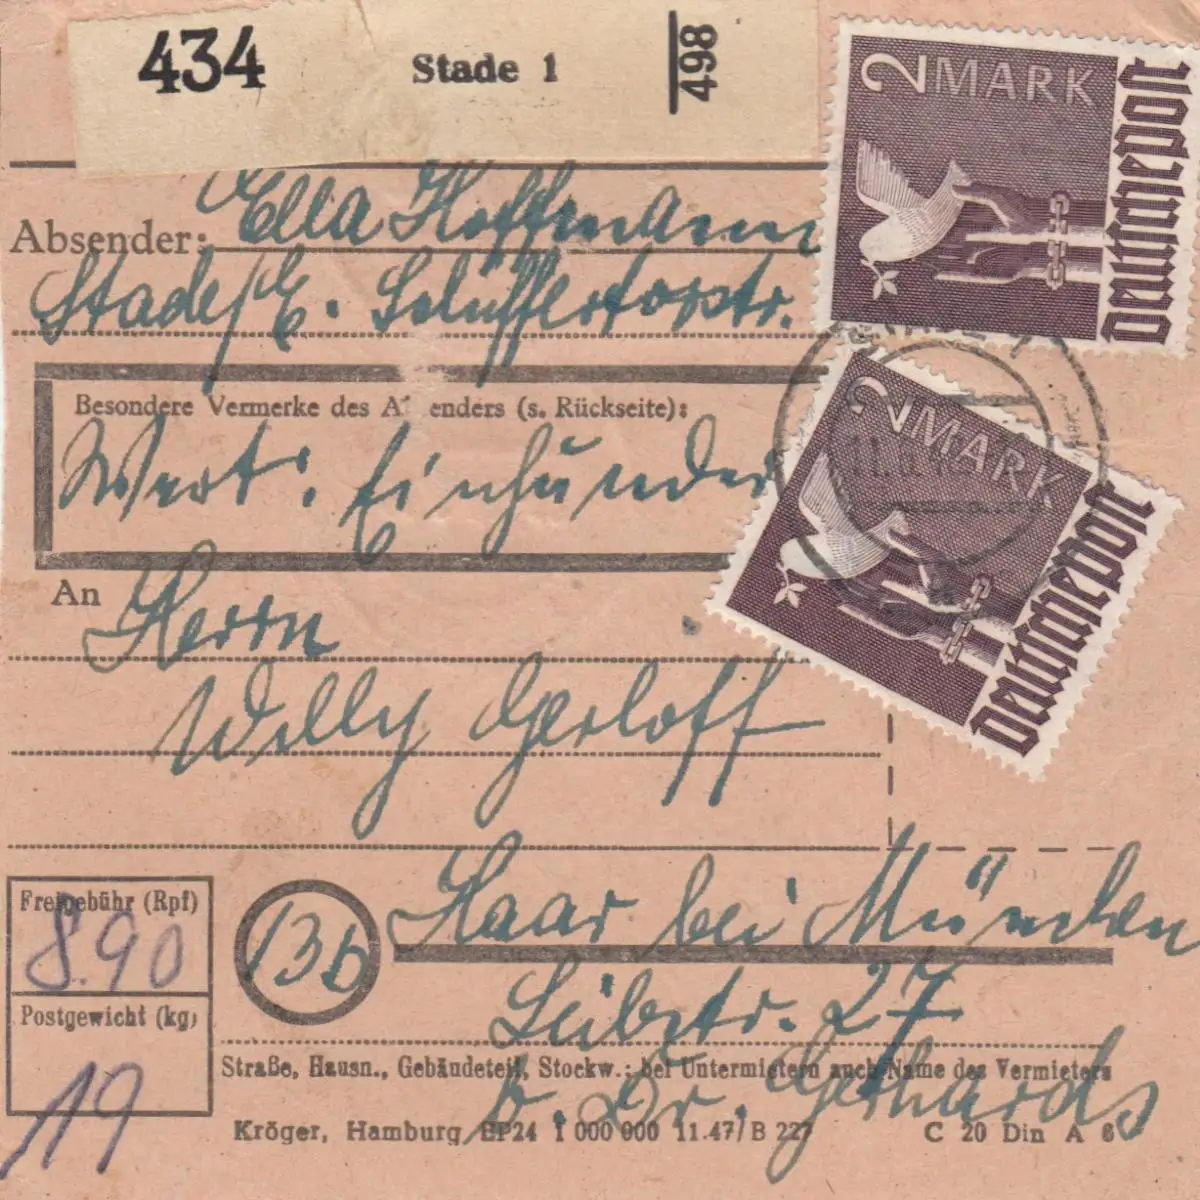 434 Stade 1 498
2 MARK
Deutsche Post
Absender: Ella Hoffmann
Stade/E. Schiffertorstr.
Besondere Vermerke des A enders (s. Rückseite):
Wert: Einhunder
2 MARK
Deutsche Post
An Herrn
Willy Gerloff
Freigebühr (Rpf)
8.90
13b Haar bei München
Postgewicht (kg)
19
Leibstr. 27
Straße, Hausn., Gebäudeteil, Stockw.; bei Untermietern auch Name des Vermieters
b. Dr. Gerhards
Kröger, Hamburg EP24 1 000 000 11.47/B 227 C 20 Din A 6